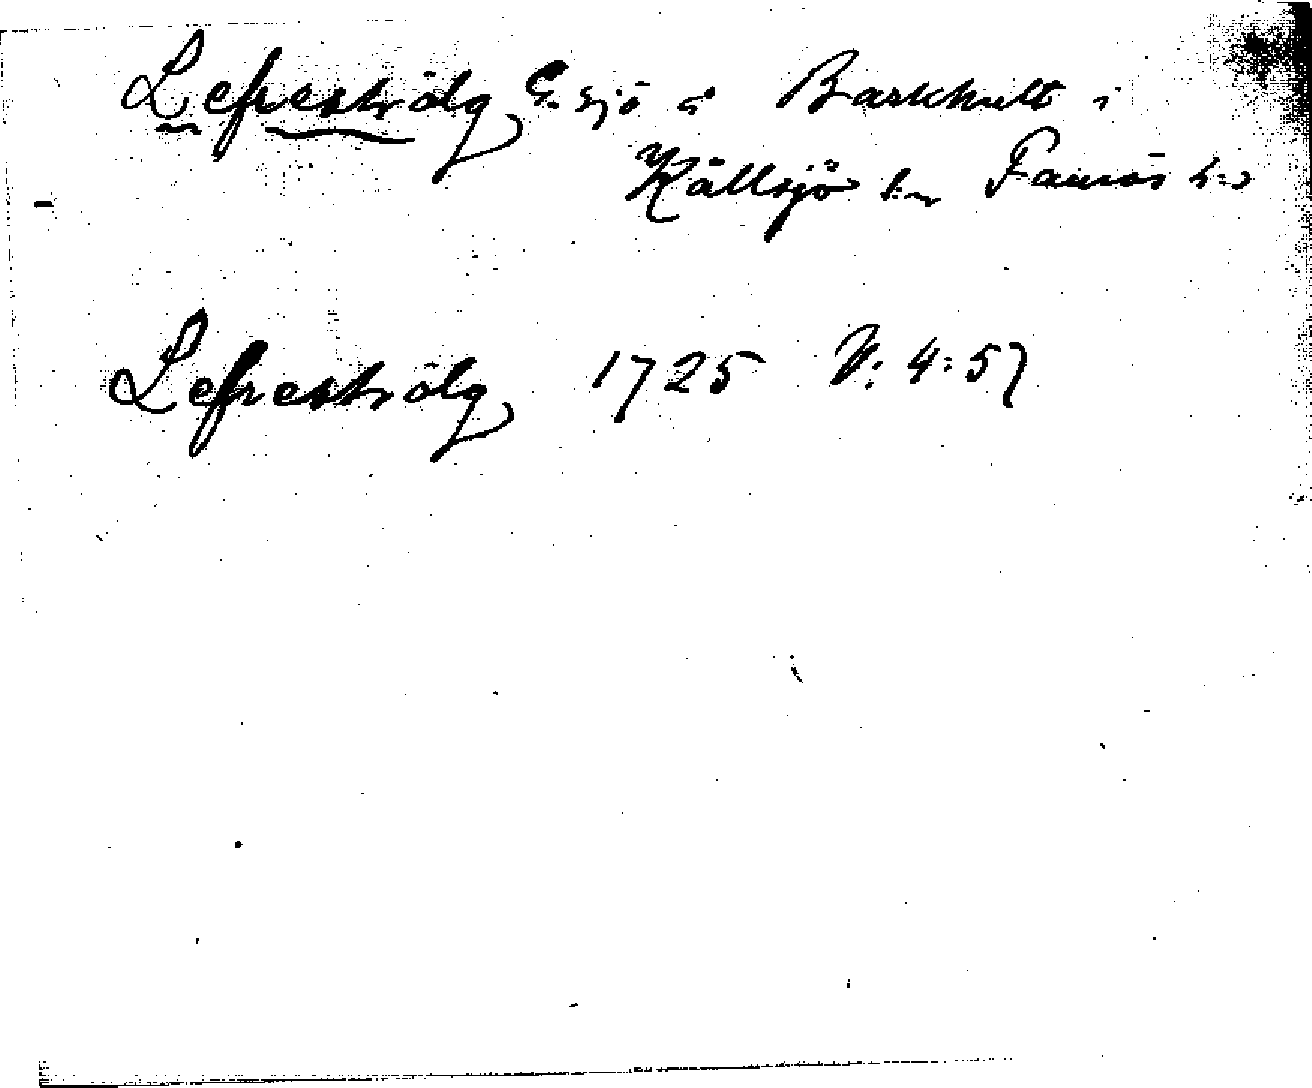 Lefveströlg G. sjö å Barkhult i
Källsjö sn Faurås hd
Lefreströlg 1725 V: 4:57